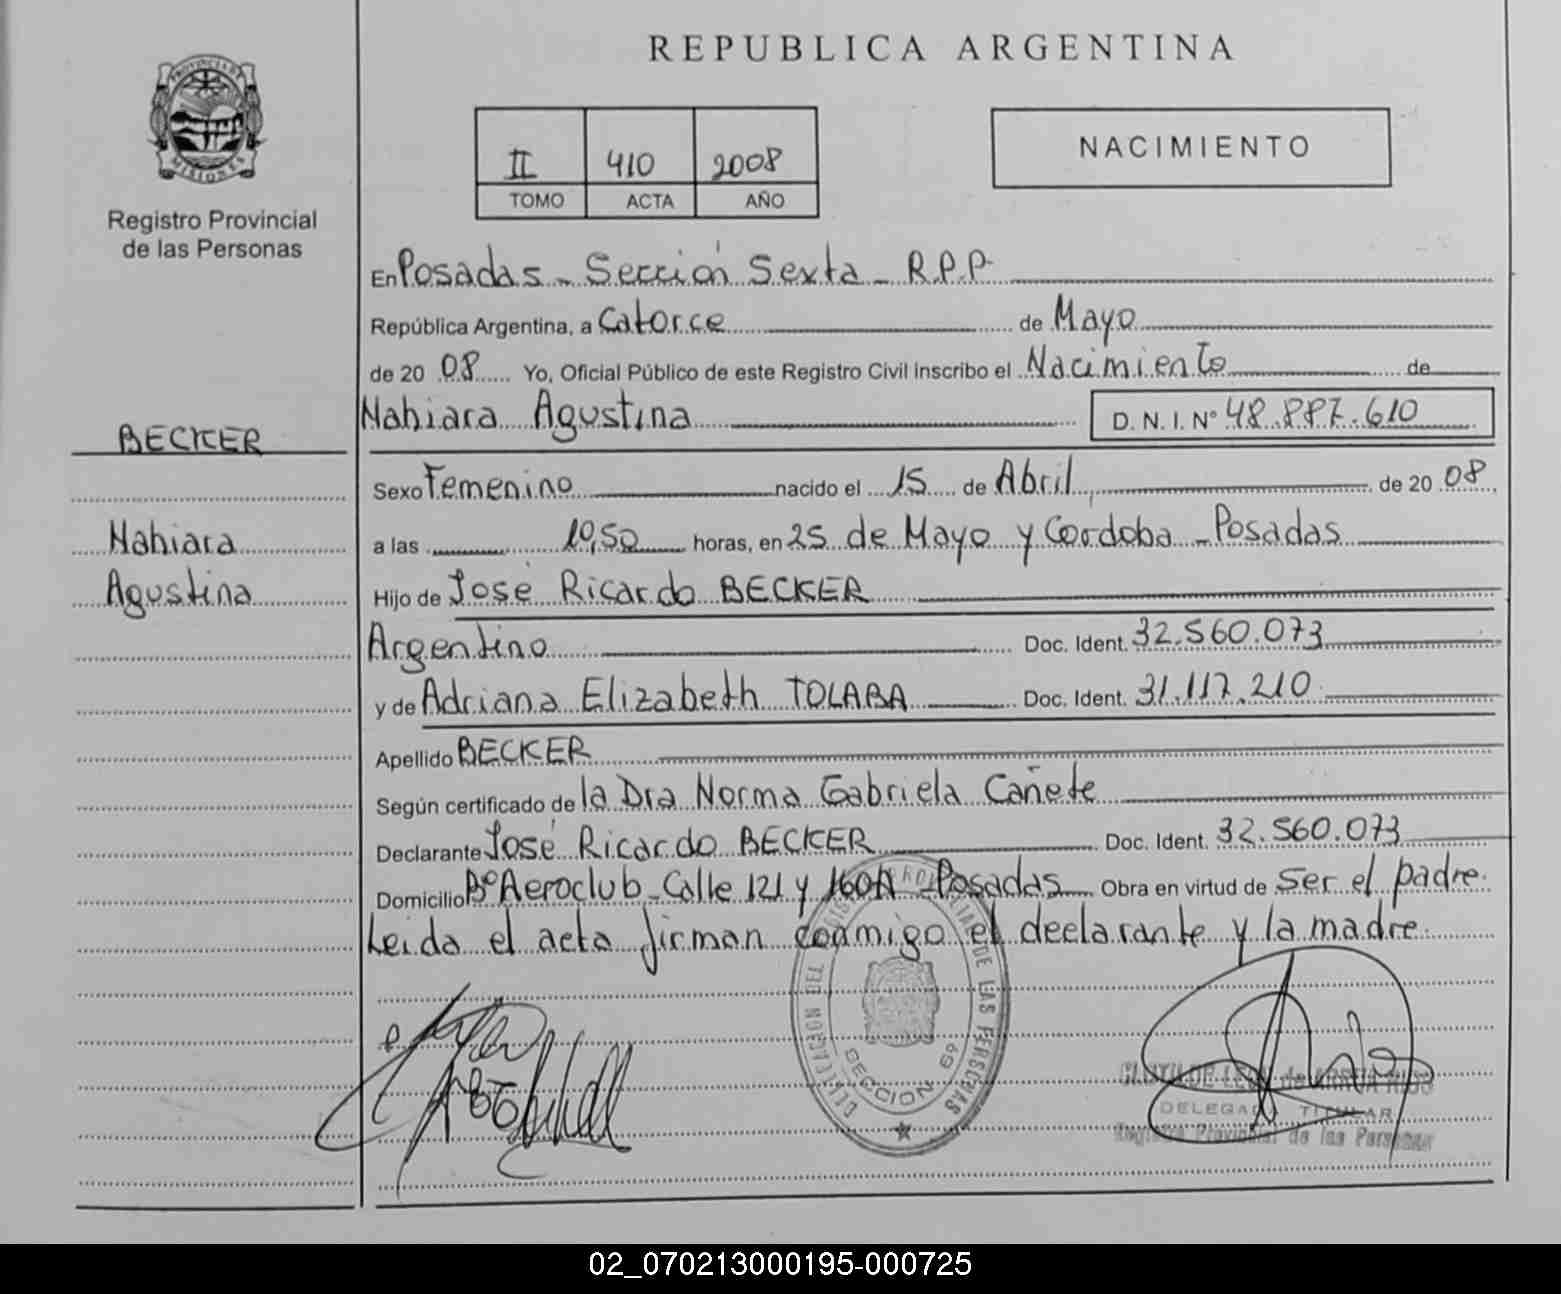 REPUBLICA ARGENTINA
PROVINCIA DE
MISIONES
Registro Provincial
de las Personas
II 410 2008
TOMO ACTA AÑO
NACIMIENTO
En Posadas - Sección Sexta - R.P.P.
República Argentina, a Catorce de Mayo
de 20 08 Yo, Oficial Público de este Registro Civil inscribo el Nacimiento de
Nahiara Agustina D. N. I. Nº 48.887.610
BECKER
Sexo Femenino nacido el 15 de Abril, de 20 08
Nahiara
a las 10,50 horas, en 25 de Mayo y Cordoba - Posadas
Agustina
Hijo de José Ricardo BECKER
Argentino Doc. Ident. 32.560.073
y de Adriana Elizabeth TOLABA Doc. Ident. 31.117.210
Apellido BECKER
Según certificado de la Dra Norma Gabriela Cañete
Declarante José Ricardo BECKER Doc. Ident. 32.560.073
Domicilio Bº Aeroclub - Calle 121 y 160A - Posadas Obra en virtud de Ser el padre.
Leida el acta firman conmigo el declarante y la madre.
DELEGACION DEL REGISTRO PROVINCIAL DE LAS PERSONAS
SECCION 6º
DELEGADO TITULAR
Registro Provincial de las Personas
02_070213000195-000725